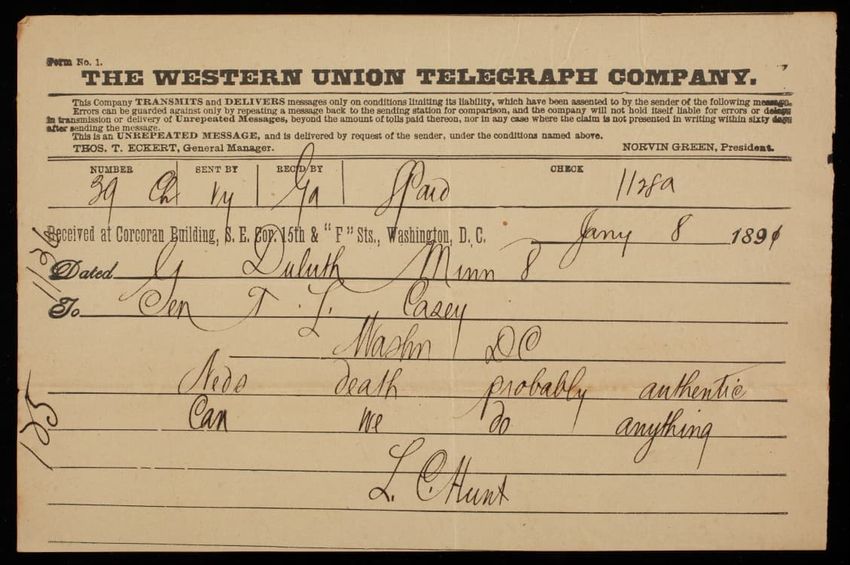 Form No. 1.
THE WESTERN UNION TELEGRAPH COMPANY.
This Company TRANSMITS and DELIVERS messages only on conditions limiting its liability, which have been assented to by the sender of the following message.
Errors can be guarded against only by repeating a message back to the sending station for comparison, and the company will not hold itself liable for errors or delays
in transmission or delivery of Unrepeated Messages, beyond the amount of tolls paid thereon, nor in any case where the claim is not presented in writing within sixty days
after sending the message.
This is an UNREPEATED MESSAGE, and is delivered by request of the sender, under the conditions named above.
THOS. T. ECKERT, General Manager. NORVIN GREEN, President.
NUMBER SENT BY REC'D BY CHECK
39 Ch Ny Ga Paid 1128a
Received at Corcoran Building, S. E. Cor. 15th & "F" Sts., Washington, D. C. Jany 8 1891
Dated G Duluth Minn 8
To Gen T. L. Casey
Washn DC
Neds death probably authentic
Can we do anything
L. C. Hunt
1126
125